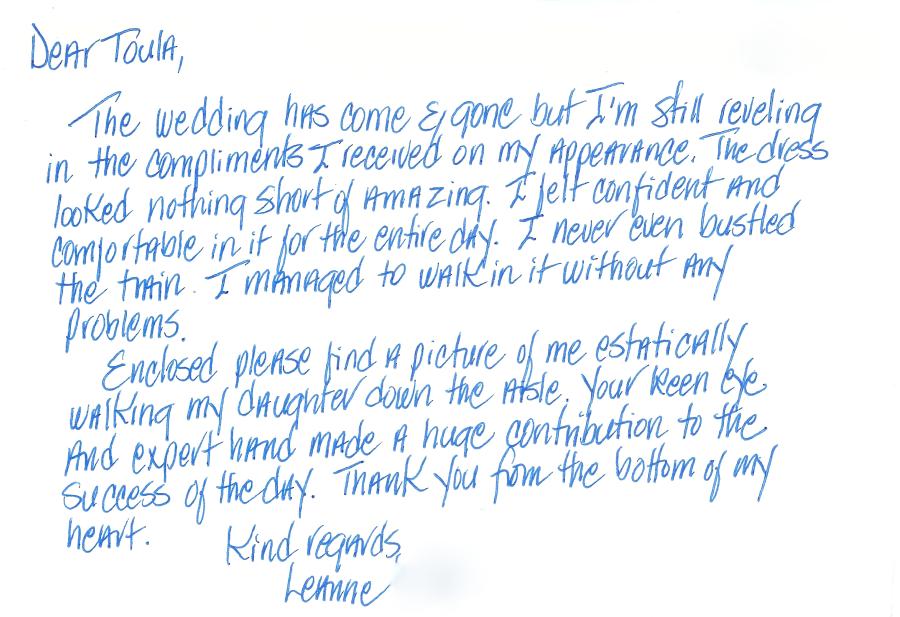 Dear Toula,
The wedding has come & gone but I'm still reveling
in the compliments I received on my appearance. The dress
looked nothing short of amazing. I felt confident and
comfortable in it for the entire day. I never even bustled
the train. I managed to walk in it without any
problems.
Enclosed please find a picture of me estatically
walking my daughter down the aisle. Your keen eye
and expert hand made a huge contribution to the
success of the day. Thank you from the bottom of my
heart.
Kind regards,
Leanne